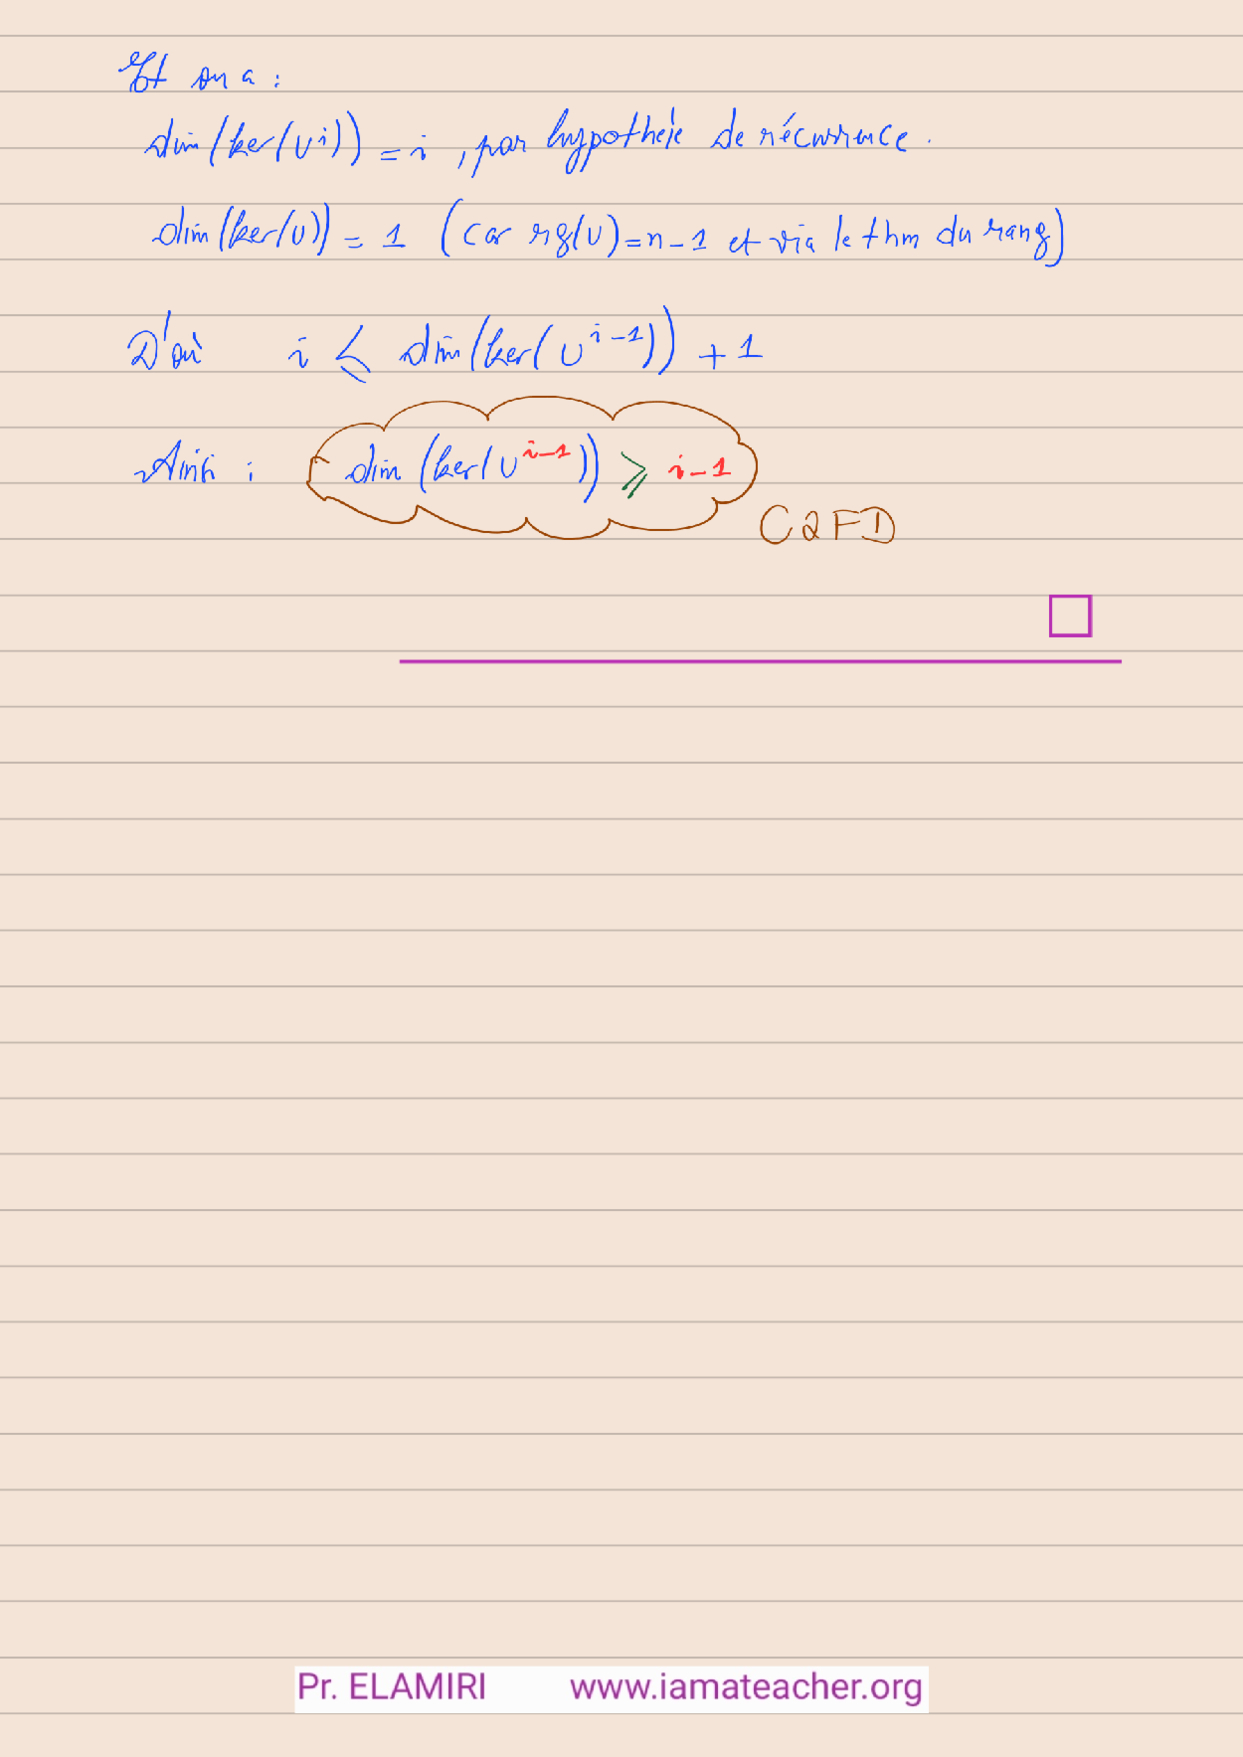 Et on a :
dim(ker(u^i)) = i , par hypothèse de récurrence .
dim(ker(u)) = 1 (car rg(u)=n-1 et via le thm du rang)
D'où i ⩽ dim(ker(u^{i-1})) + 1
Ainsi : dim(ker(u^{i-1})) ⩾ i-1
CQFD
Pr. ELAMIRI www.iamateacher.org